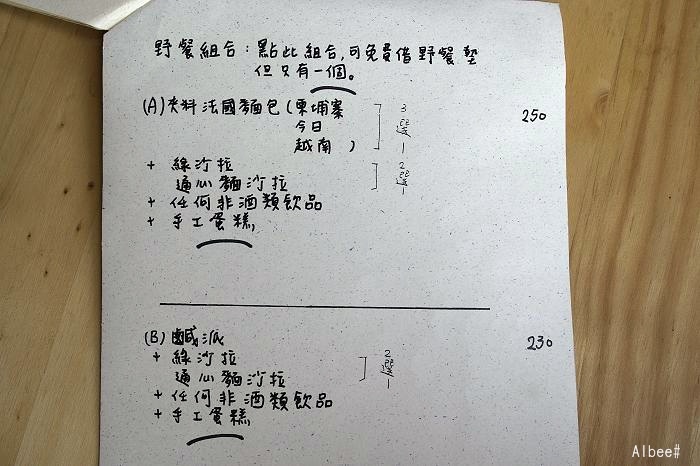 野餐組合:點此組合,可免費借野餐墊
但只有一個。
(A)夾料法國麵包(柬埔寨 3選1 250
今日
越南)
+ 綠沙拉 2選1
通心麵沙拉
+ 任何非酒類飲品
+ 手工蛋糕
(B)鹹派 230
+ 綠沙拉 2選1
通心麵沙拉
+任何非酒類飲品
+手工蛋糕
Albee#